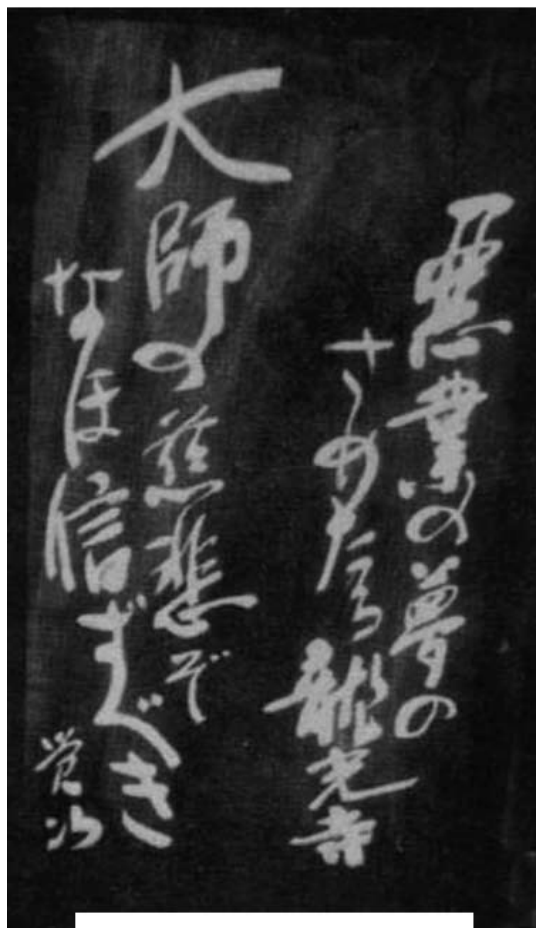 悪業の夢の
さめたる龍光寺
大師の慈悲ぞ
なほ信ずべき